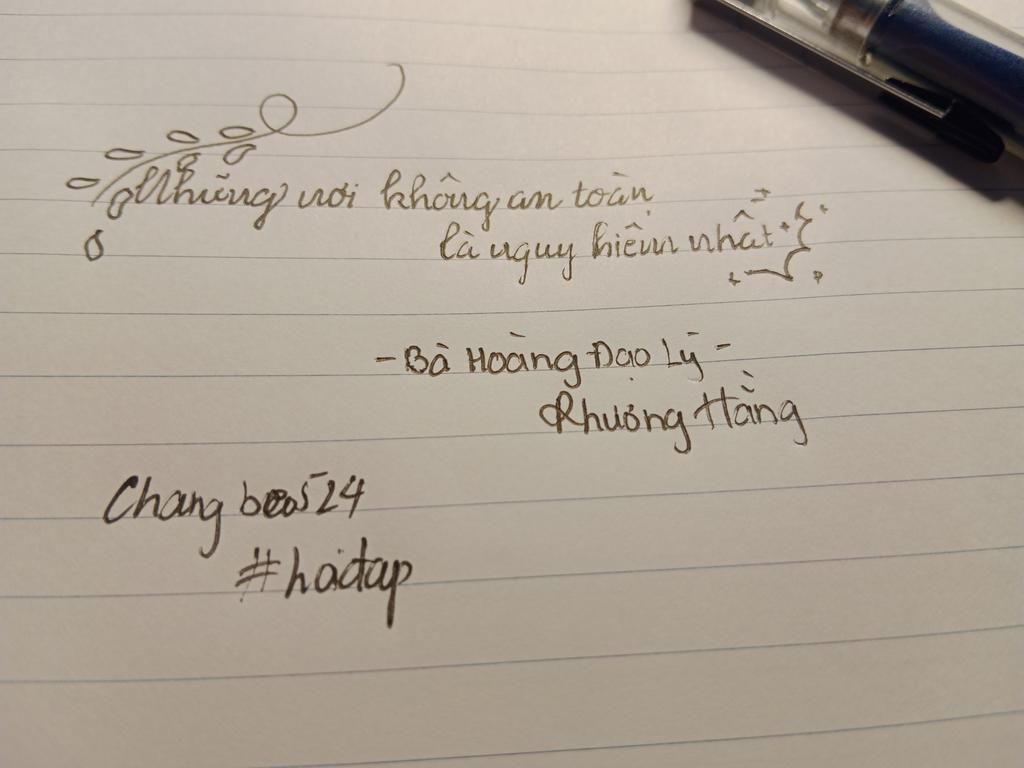 Những nơi không an toàn
là nguy hiểm nhất
- Bà Hoàng Đạo Lý -
Phương Hằng
Chang 524
#hoidap